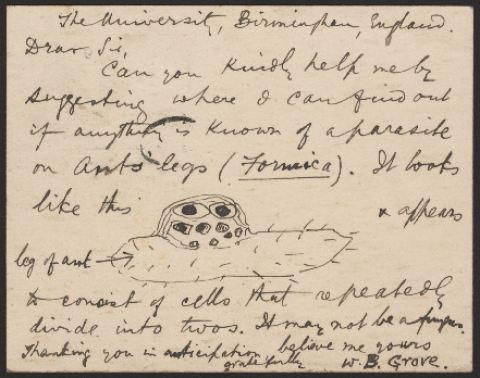 The University, Birmingham, England.
Dear Sir,
Can you kindly help me by
suggesting where I can find out
if anything is known of a parasite
on Ants' legs (Formica). It looks
like this
& appears
leg of ant
to consist of cells that repeatedly
divide into twos. It may not be a fungus.
Thanking you in anticipation believe me yours
gratefully W. B. Grove.